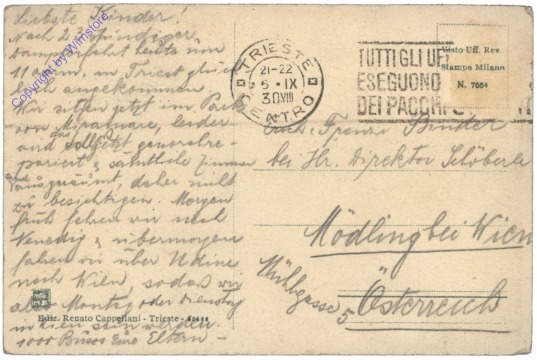 Liebste Kinder!
Nach 23 stündiger
Dampferfahrt heute um
11 Uhr, in Triest glück
lich angekommen.
Wir sitzen jetzt im Park
von Miramare, leider
sind Schloß generalre-
pariert & sämtliche Zimmer
ausgeräumt, daher nicht
zu besichtigen. Morgen
früh fahren wir nach
Venedig & übermorgen
fahren wir über Udine
nach Wien, sodaß wir
also Montag oder Dienstag
in Wien sein werden.
1000 Bussi Eure Eltern
Ediz. Renato Cappellani - Trieste
Copyright by Wilmstore
TRIESTE
21-22
5 · IX
30 VIII
CENTRO
TUTTI GLI UF
ESEGUONO
DEI PACCHI
Visto Uff. Rev.
Stampa Milano
N. 7664
bei Hr. Direktor Schöberl
Mödling bei Wien
Mühlgasse 5
Österreich